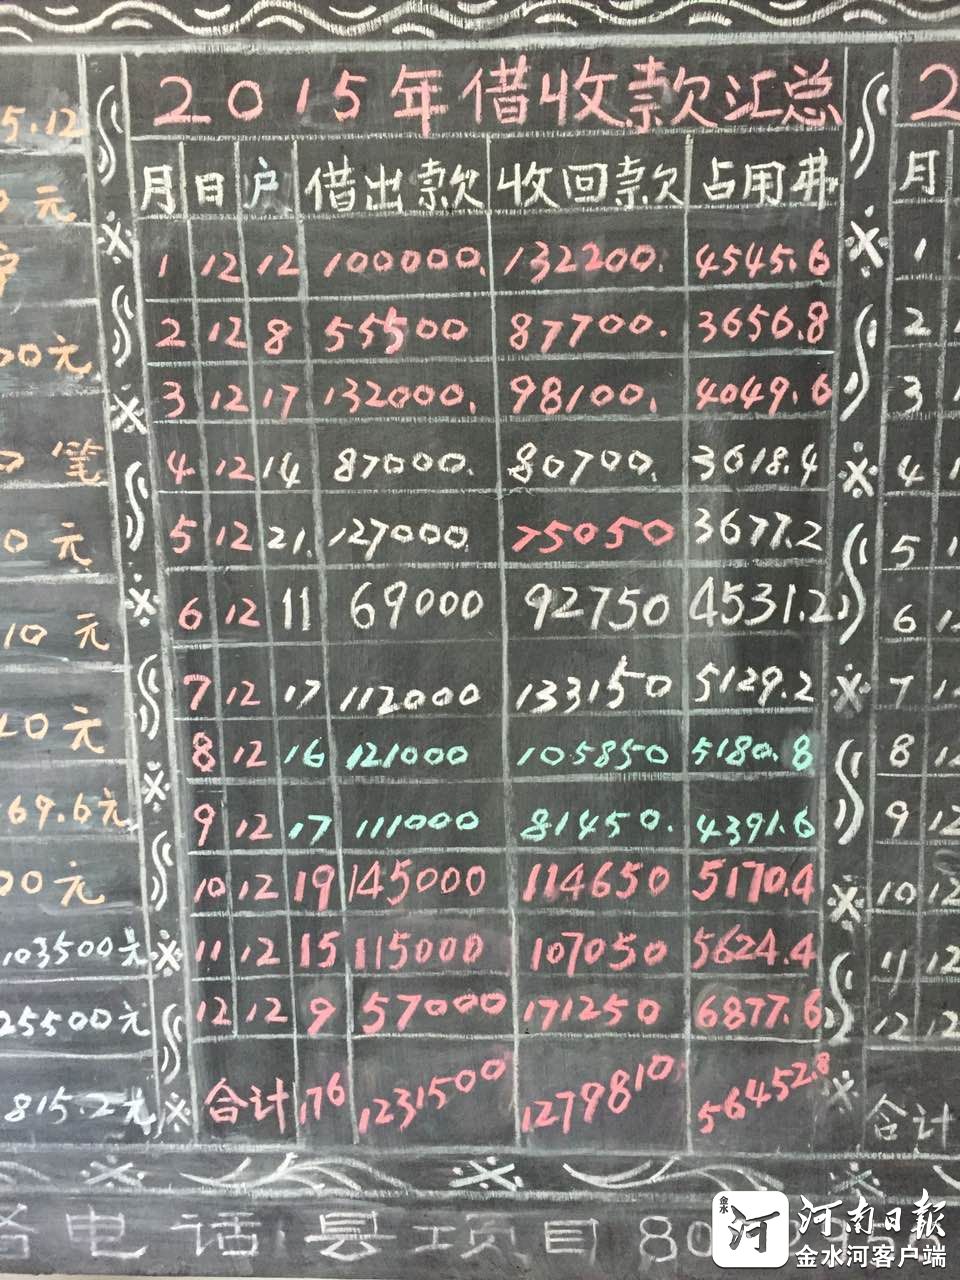 2015年借收款汇总
月 日 户 借出款 收回款 占用费
1 12 12 100000. 132200. 4545.6
2 12 8 55500 87700. 3656.8
3 12 17 132000. 98100. 4049.6
4 12 14 87000. 80700. 3618.4
5 12 21. 127000. 75050 3677.2
6 12 11 69000 92750 4531.2
7 12 17 112000 133150 5129.2
8 12 16 121000 105850 5180.8
9 12 17 111000 81450. 4391.6
10 12 19 145000 114650 5170.4
11 12 15 115000 107050 5624.4
12 12 9 57000 171250 6877.6
合计 176 1231500 1279810 56452.8
5.12
0元
00元
0笔
0元
10元
40元
69.6元
00元
103500元
25500元
815.2元
2
月
1
2
3
4 1
5 1
6 1
7 1
8 1
9 12
10 12
11 12
12 12
合计
电话县项目80
金水 河 河南日报
金水河客户端